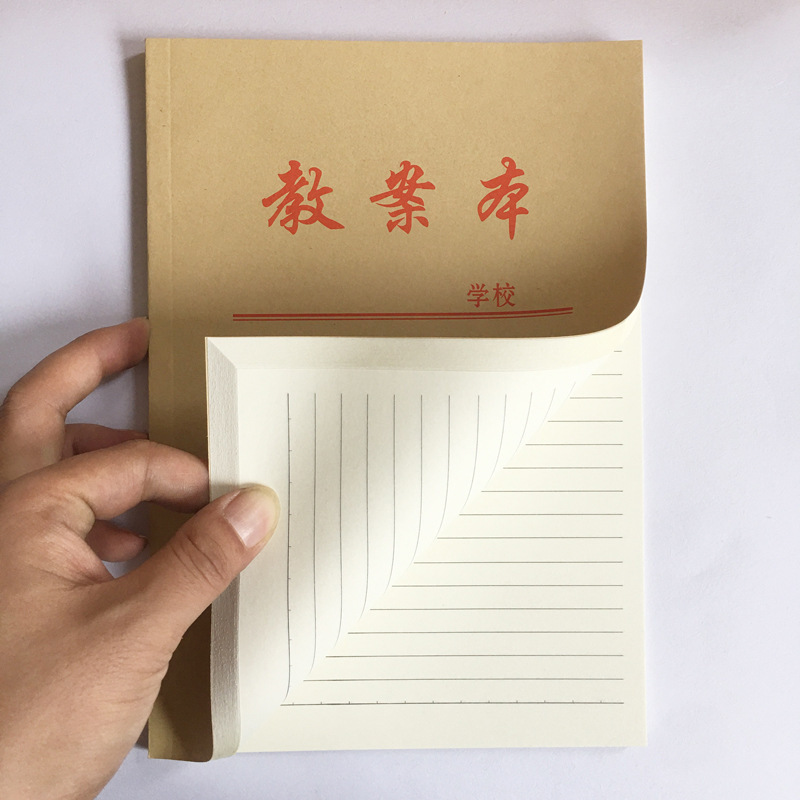 教案本
学校